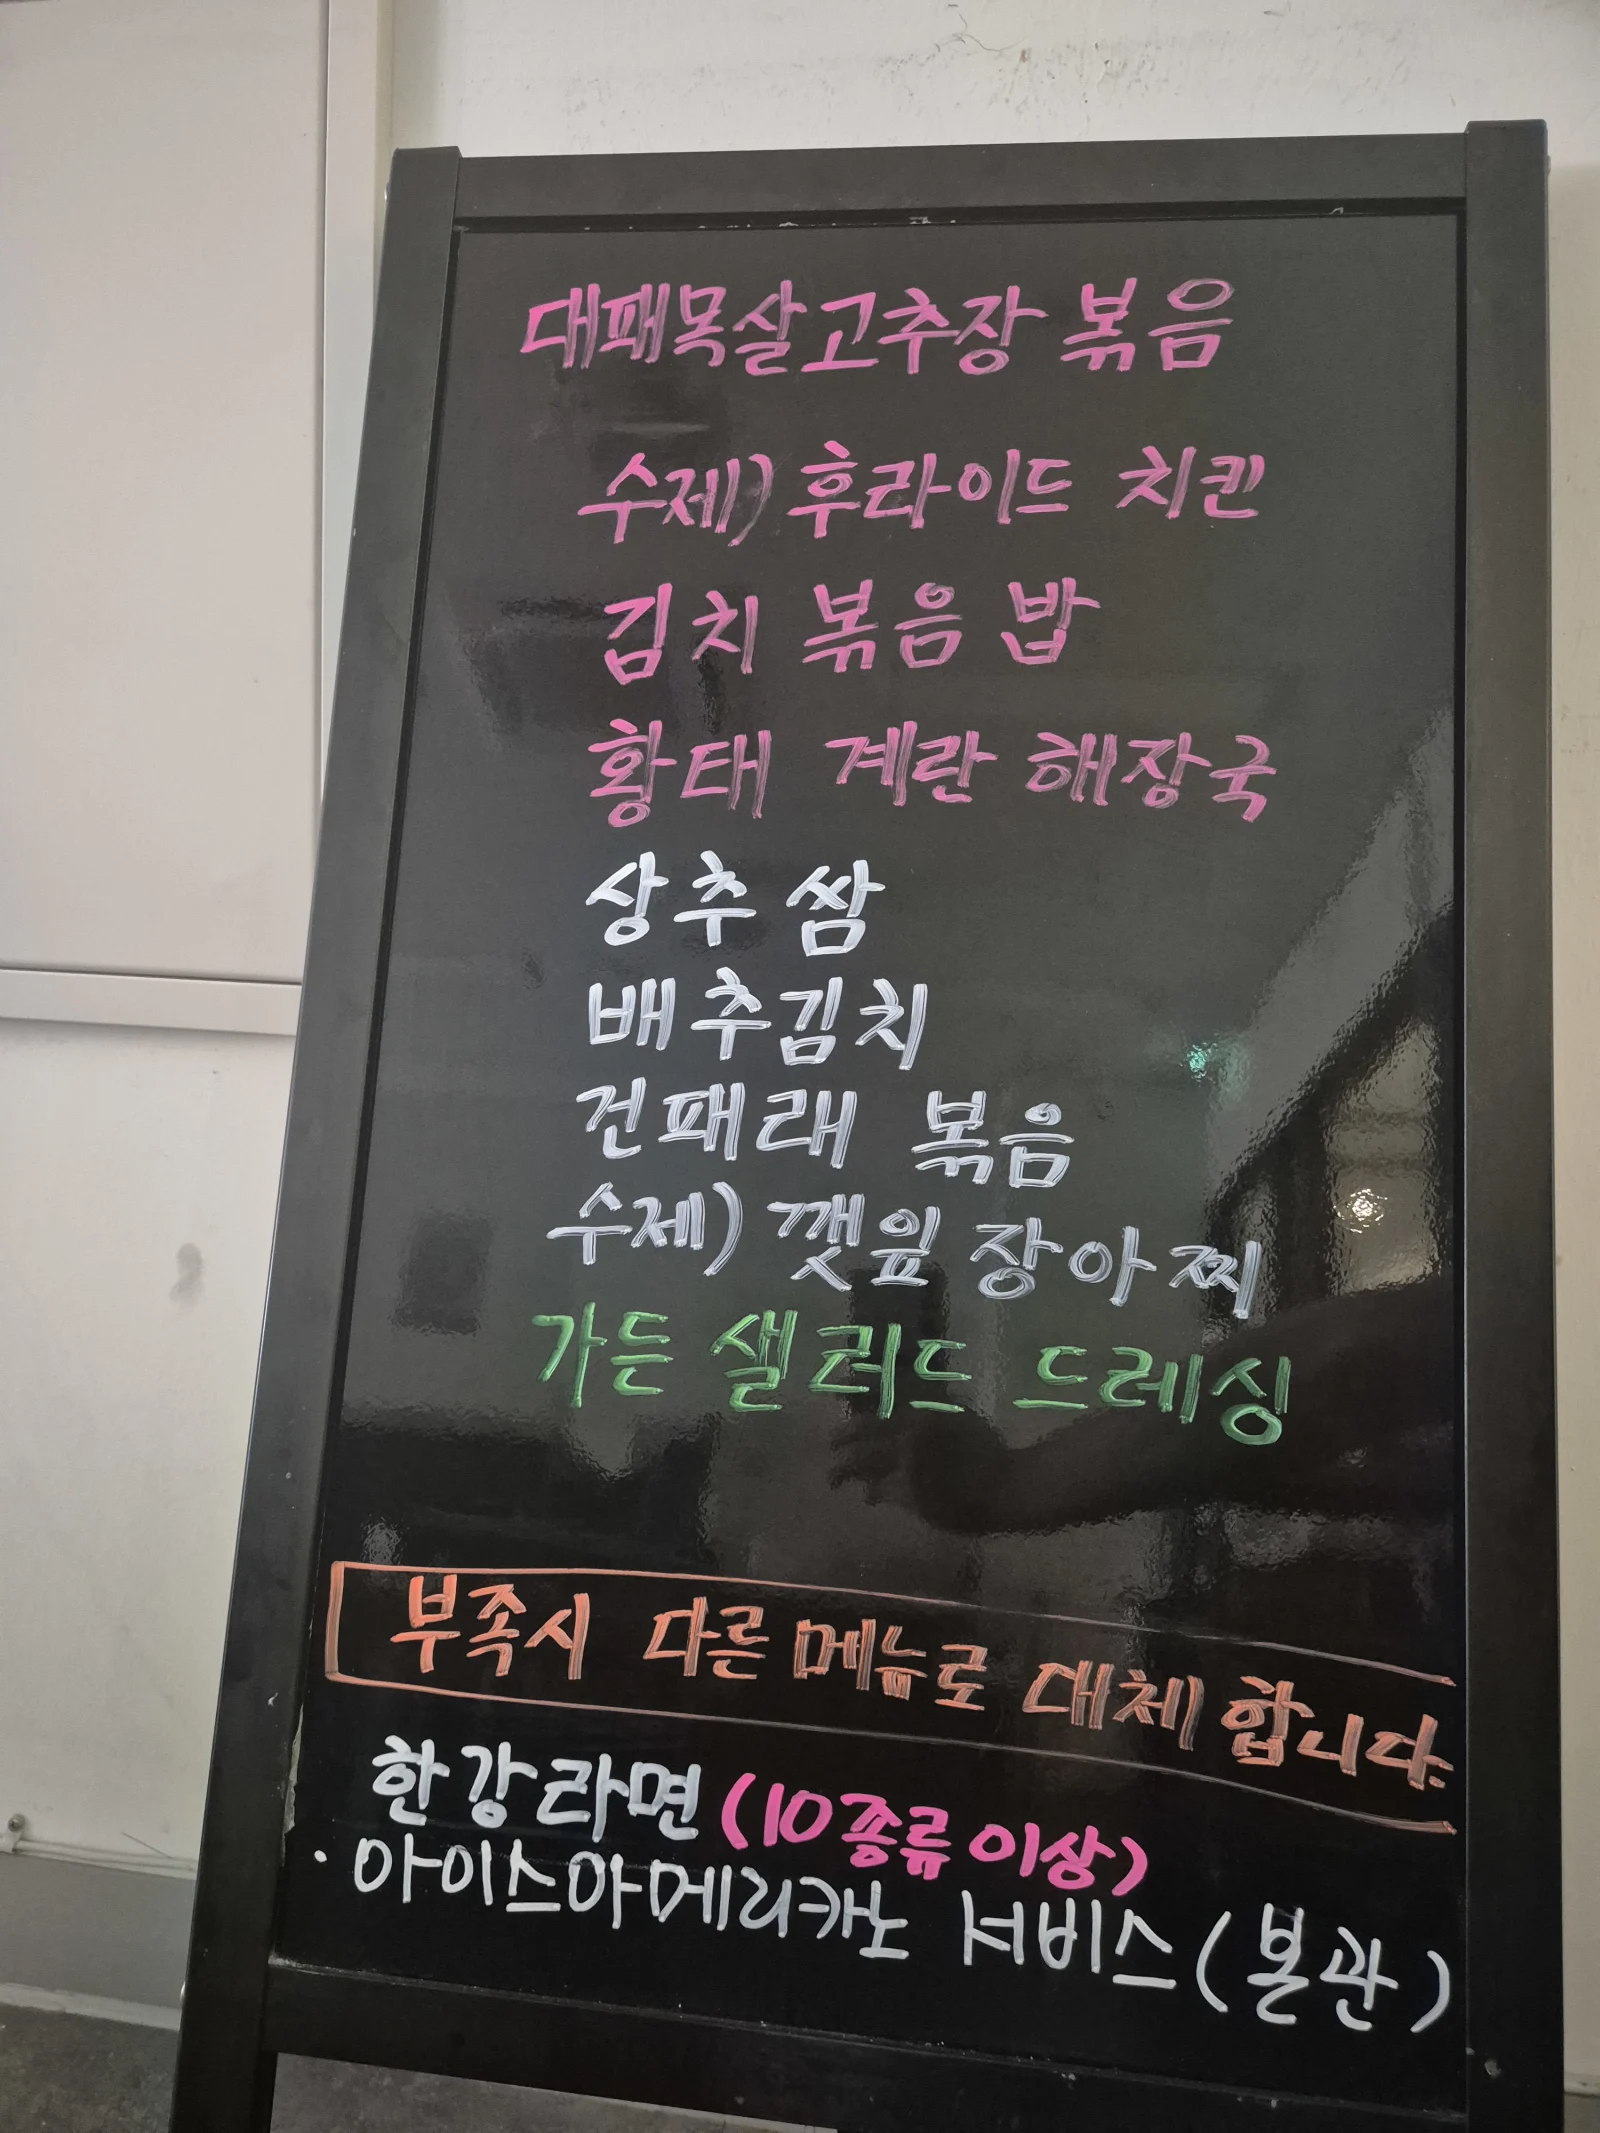 대패목살고추장 볶음
수제) 후라이드 치킨
김치 볶음 밥
황태 계란 해장국
상추 쌈
배추김치
건패래 볶음
수제) 깻잎 장아찌
가든 샐러드 드레싱
부족시 다른 메뉴로 대체 합니다.
한강라면 (10종류 이상)
· 아이스아메리카노 서비스 (본관)